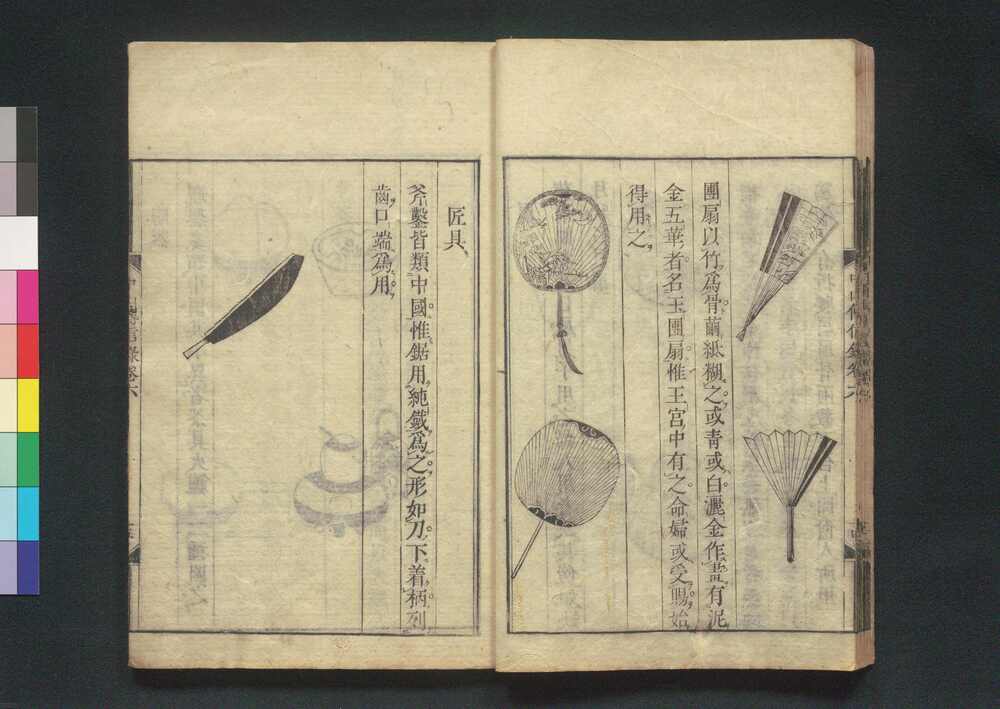 團扇以竹爲骨繭紙糊之或青或白灑金作畫有泥
金五華者名王團扇惟王宮中有之命婦或受賜始
得用之
匠具
斧鑿皆類中國惟鋸用純鐵爲之形如刀下着柄列
齒口端爲用
中山傳信錄卷六